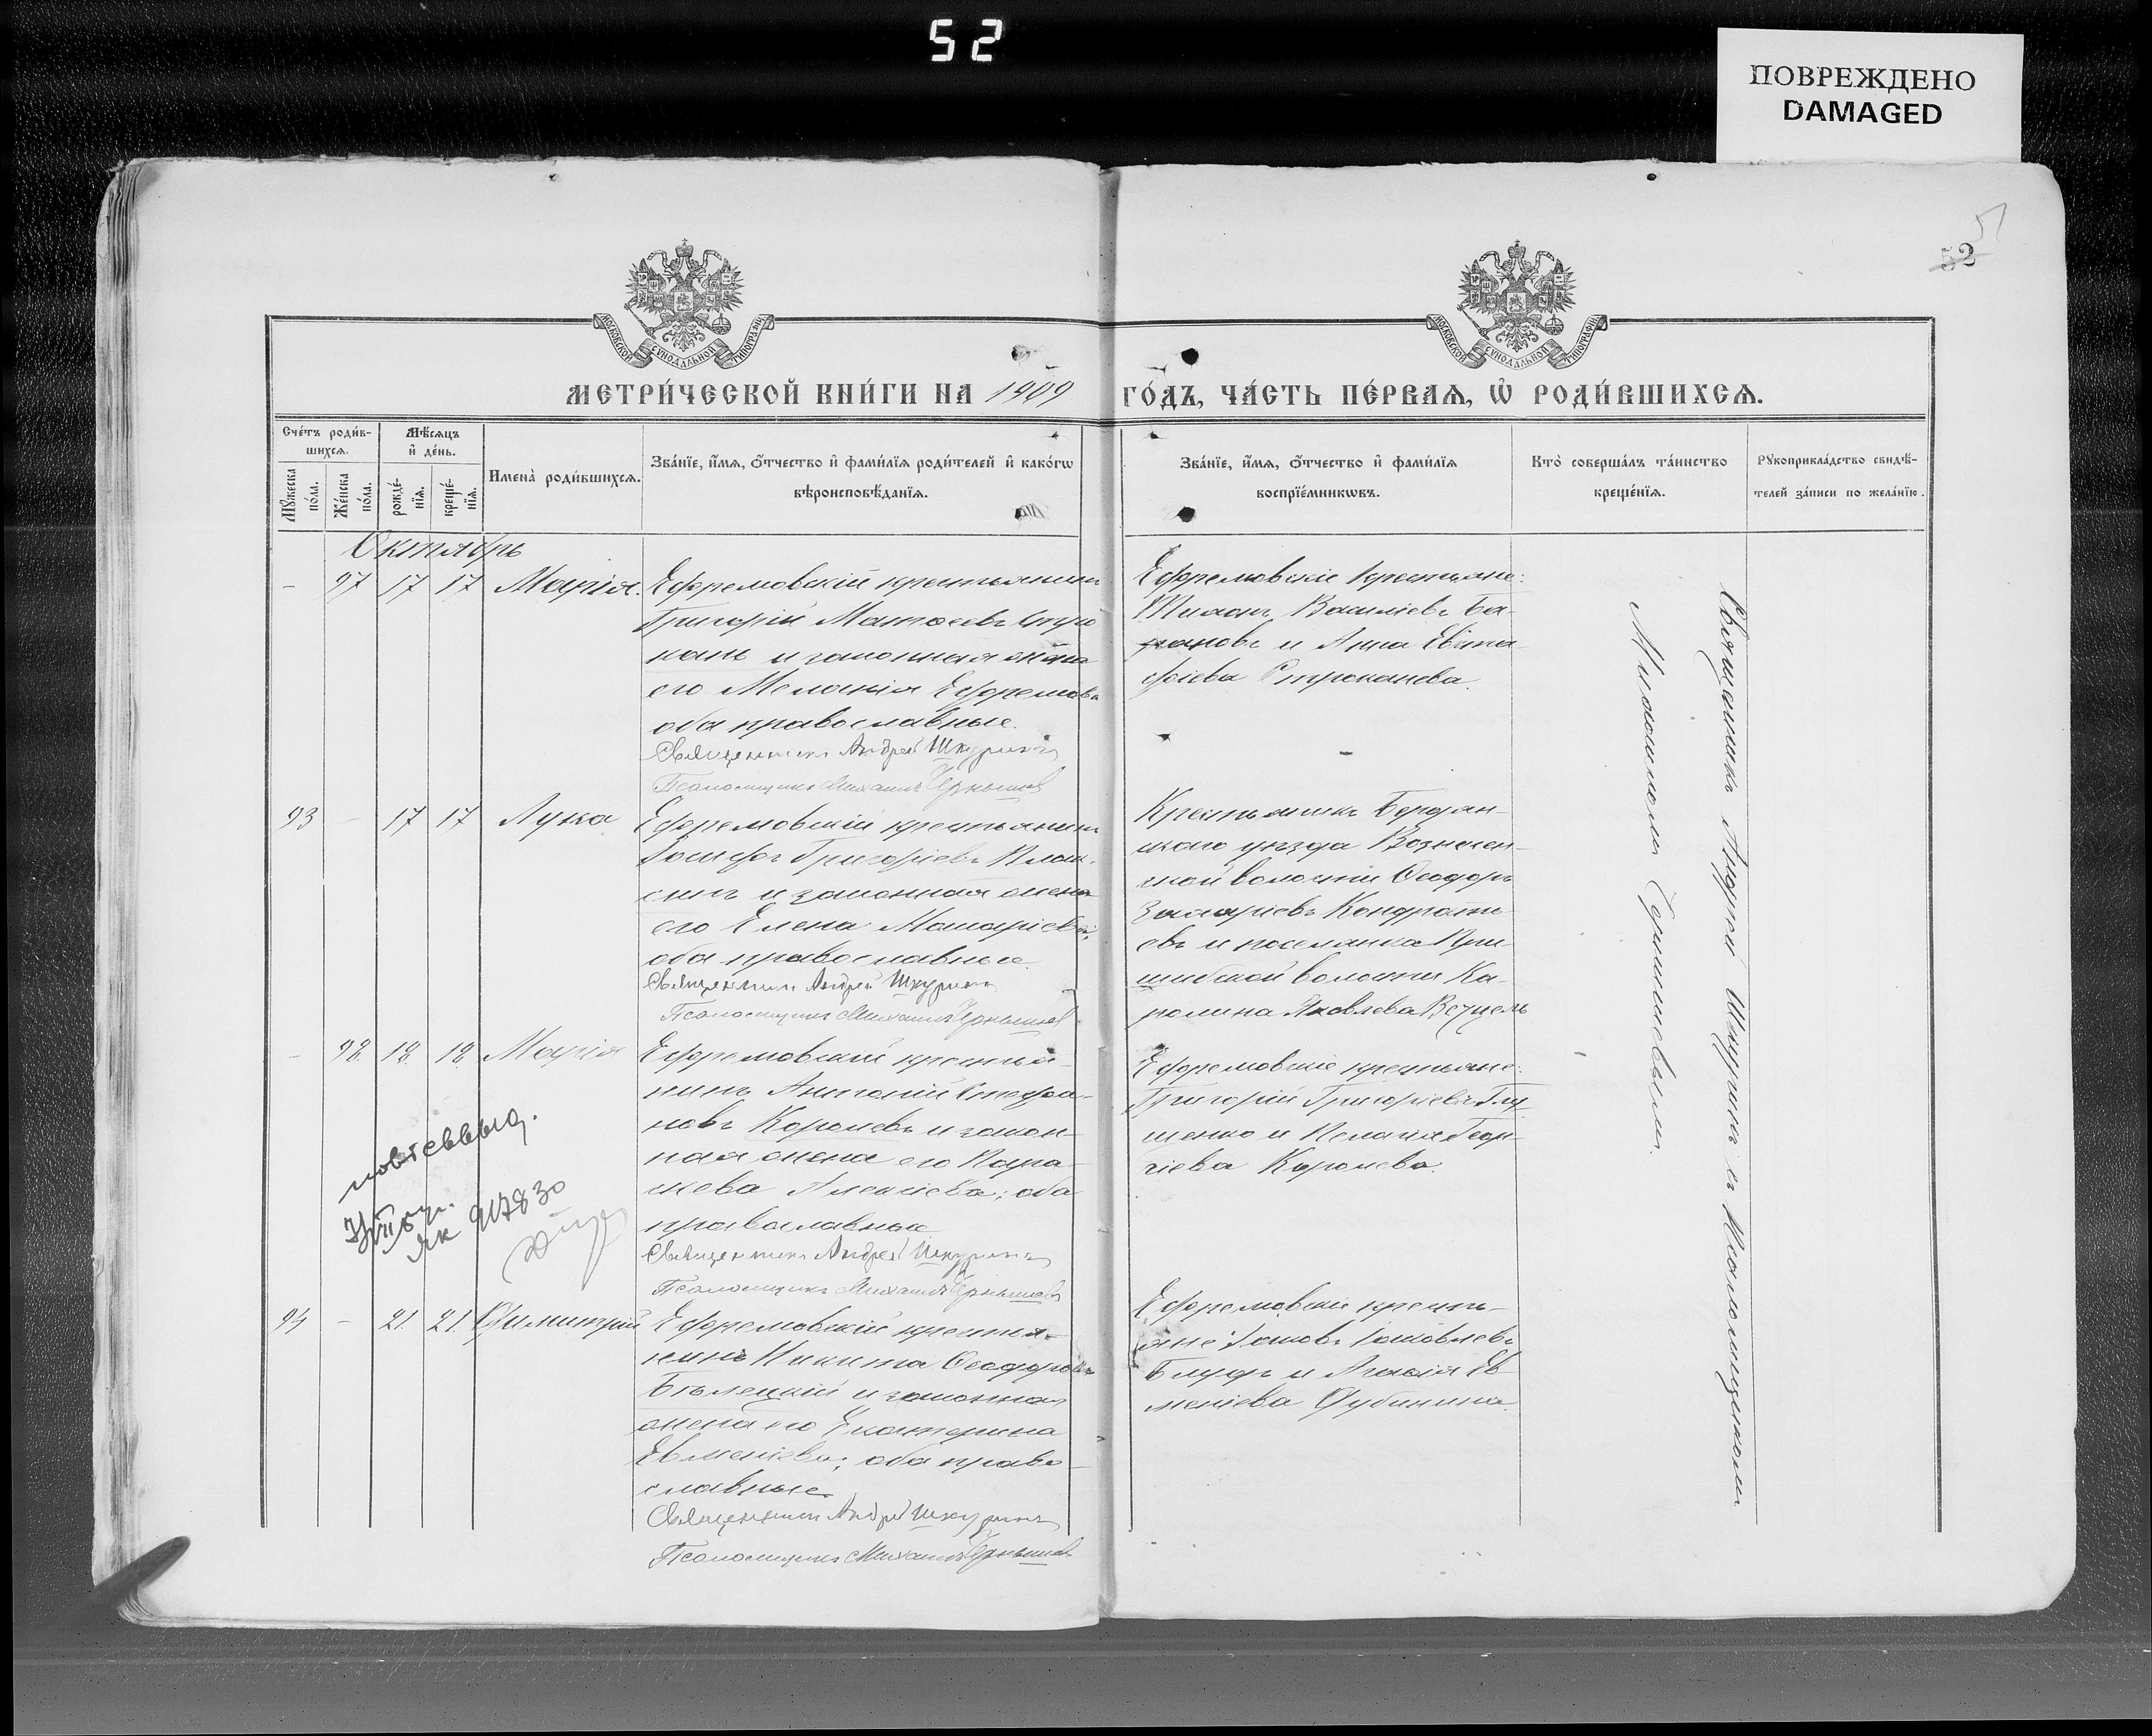 52
ПОВРЕЖДЕНО
DAMAGED
51
52
МОСКОВСКОЙ СѴНОДАЛЬНОЙ ТИПОГРАФІИ
МОСКОВСКОЙ СѴНОДАЛЬНОЙ ТИПОГРАФІИ
МЕТРИ́ЧЕСКОЙ КНИ́ГИ НА 1909 ГО́ДЪ, ЧА́СТЬ ПЕ́РВАЯ, Ѡ РОДИ́ВШИХСЯ.
Сче́тъ роди́в-
шихся.
Мѣ́сяцъ
и҆ де́нь.
Му́жеска по́ла.
Же́нска по́ла.
рожде́-
нїя.
креще́-
нїя.
Имена̀ роди́вшихся.
Зва́нїе, и҆́мя, ѻ҆́тчество и҆ фами́лїя роди́телей и҆ како́гѡ
вѣроисповѣ́данїя.
Зва́нїе, и҆́мя, ѻ҆́тчество и҆ фами́лїя
воспрїе́мникѡвъ.
Кто̀ соверша́лъ та́инство
креще́нїя.
Рꙋкоприкла́дство свидѣ́-
телей за́писи по жела́нїю.
Октябрь
- 97 17 17 Марія. Ефремовскій крестьянинъ
Григорій Матѳеевъ Стро
кань и законная жена
его Меланія Ефремова
оба православные.
Священникъ Андрей Шкуринъ
Псаломщикъ Михаилъ Чернышев
Ефремовскіе крестьяне:
Василіевъ Ба-
рановъ и Анна Евста-
фіева Строканева.
93 - 17 17 Лука Ефремовскій крестьянинъ
Іосифъ Григоріевъ
и законная жена
его Елена Макаріева,
оба православные.
Священникъ Андрей Шкуринъ
Псаломщикъ Михаилъ Чернышев
Крестьянинъ Бердян-
скаго уѣзда Вознесен-
ской волости Ѳеодоръ
Захаріевъ Кондрать-
евъ и поселянка При-
шибской волости Ка-
ролина Яковлева Вецель
- 98 18 18 Марія Ефремовскій крестья-
нинъ Антоній Стефа-
новъ Королевъ и закон-
ная жена его Пара-
скева Алексіева; оба
православные
Священникъ Андрей Шкуринъ
Псаломщикъ Михаилъ Чернышев
Ефремовскіе крестьяне:
Григорій Григоріевъ Глу-
щенко и Пелагія Геор-
гіева Королева.
ЯК 917830
94 - 21 21 Димитрій Ефремовскій крестья-
нинъ Никита Ѳеодоровъ
Бѣлецкій и законная
жена его Екатерина
Евменіева; оба право-
славные
Священникъ Андрей Шкуринъ
Псаломщикъ Михаилъ Чернышев
Ефремовскіе крестья-
не: Іаковъ Іаковлевъ
и Агаѳія Ев-
меніева Дубинина.
Священникъ Андрей Шкуринъ съ Псаломщикомъ
Михаиломъ Чернышевымъ.